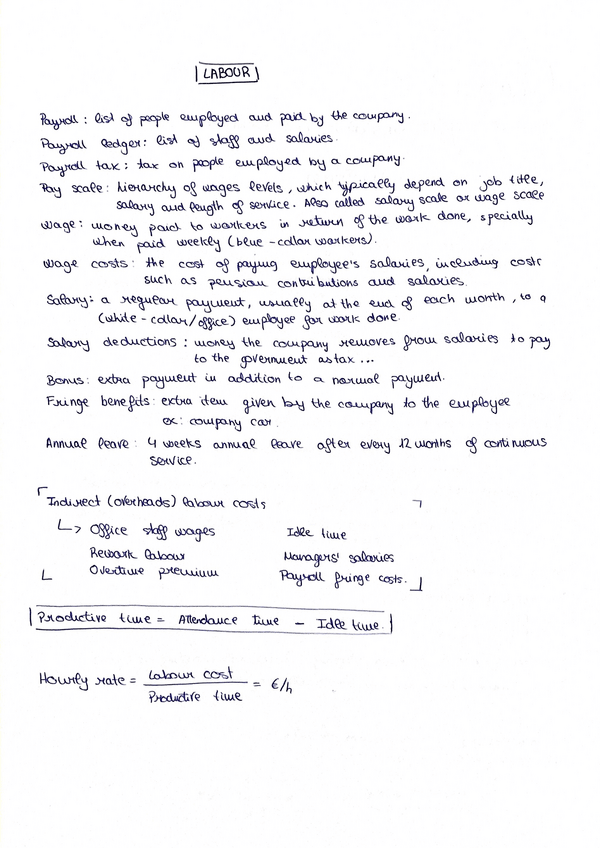 LABOUR
Payroll : list of people employed and paid by the company.
Payroll ledger: list of staff and salaries.
Payroll tax : tax on people employed by a company.
Pay scale : hierarchy of wages levels, which typically depend on job title,
salary and length of service. Also called salary scale or wage scale
Wage : money paid to workers in return of the work done, specially
when paid weekly (blue-collar workers).
Wage costs: the cost of paying employee's salaries, including costs
such as pension contributions and salaries.
Salary: a regular payment, usually at the end of each month, to a
(white-collar/office) employee for work done.
Salary deductions : money the company removes from salaries to pay
to the government as tax ...
Bonus: extra payment in addition to a normal payment.
Fringe benefits: extra item given by the company to the employee
ex: company car.
Annual leave: 4 weeks annual leave after every 12 months of continuous
service.
Indirect (overheads) labour costs
Office staff wages Idle time
Rework labour Managers' salaries
Overtime premium Payroll fringe costs.
Productive time = Attendance time - Idle time.
Hourly rate = Labour cost / Productive time = €/h